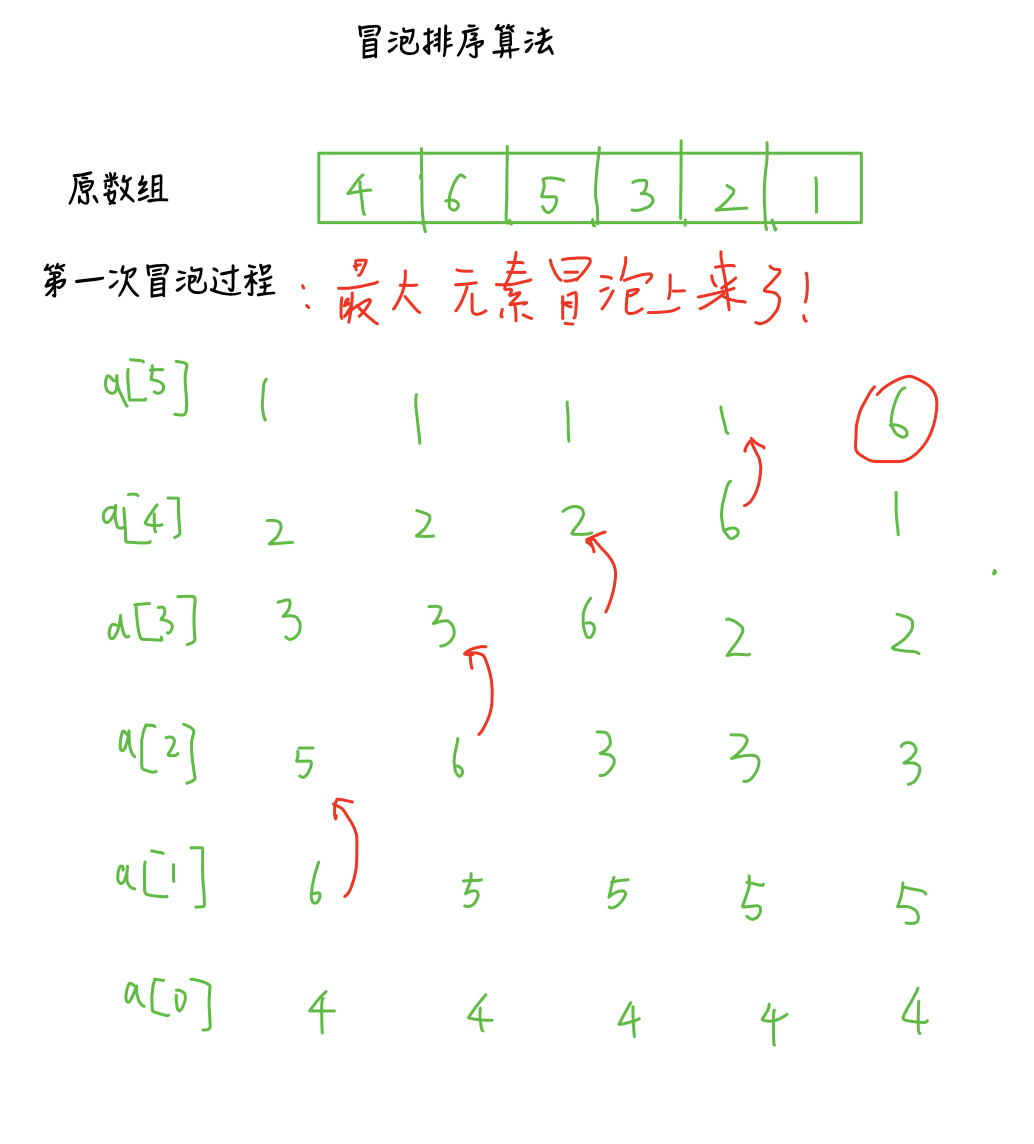 冒泡排序算法
原数组 4 6 5 3 2 1
第一次冒泡过程 : 最大元素冒泡上来了!
a[5] 1 1 1 1 6
a[4] 2 2 2 6 1
a[3] 3 3 6 2 2
a[2] 5 6 3 3 3
a[1] 6 5 5 5 5
a[0] 4 4 4 4 4